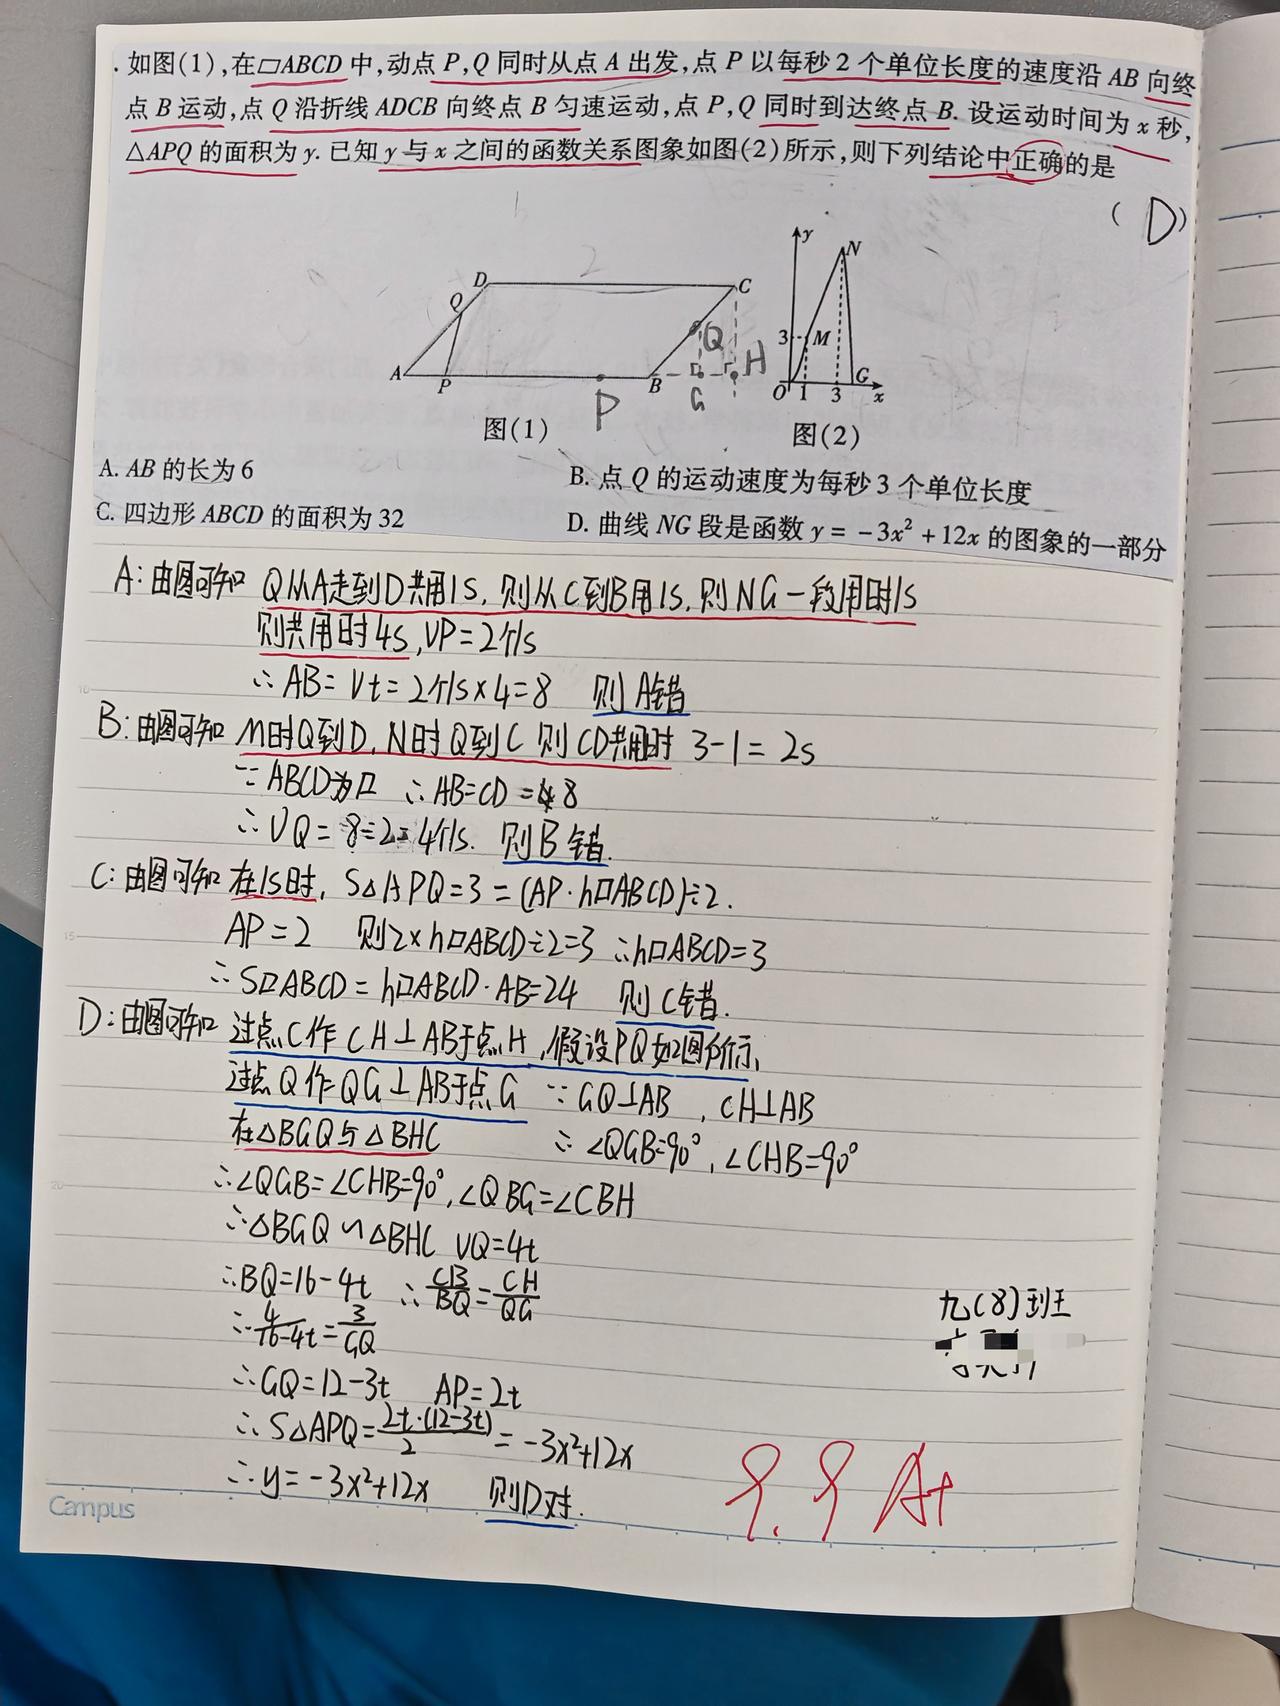 . 如图(1),在▱ABCD 中,动点 P,Q 同时从点 A 出发,点 P 以每秒 2 个单位长度的速度沿 AB 向终
点 B 运动,点 Q 沿折线 ADCB 向终点 B 匀速运动,点 P,Q 同时到达终点 B. 设运动时间为 x 秒,
△APQ 的面积为 y. 已知 y 与 x 之间的函数关系图象如图(2)所示,则下列结论中正确的是
( D )
D
C
Q
Q
A
P
P
B
G
H
图(1)
y
N
3
M
O
1
3
G
x
图(2)
A. AB 的长为 6
B. 点 Q 的运动速度为每秒 3 个单位长度
C. 四边形 ABCD 的面积为 32
D. 曲线 NG 段是函数 y = -3x² + 12x 的图象的一部分
A: 由图可知 Q从A走到D共用1s, 则从C到B用1s, 则NG一段用时1s
则共用时4s, VP=2个/s
∴ AB= Vt= 2个/s×4=8 则A错
B: 由图可知 M时Q到D, N时Q到C 则CD共用时 3-1=2s
∵ ABCD为▱ ∴ AB=CD=8
∴ VQ= 8÷2=4个/s. 则B错.
C: 由图可知 在1s时, S△APQ=3=(AP·h▱ABCD)÷2.
AP=2 则2×h▱ABCD÷2=3 ∴h▱ABCD=3
∴ S▱ABCD=h▱ABCD·AB=24 则C错.
D: 由图可知 过点C作CH⊥AB于点H, 假设PQ如图所示,
过点Q作QG⊥AB于点G ∵ GQ⊥AB, CH⊥AB
在△BGQ与△BHC ∴ ∠QGB=90°, ∠CHB=90°
∴∠QGB=∠CHB=90°, ∠QBG=∠CBH
∴△BGQ∽△BHC VQ=4t
∴BQ=16-4t ∴ CB/BQ=CH/QG
∴ 4/16-4t=3/GQ
∴GQ=12-3t AP=2t
∴ S△APQ=2t·(12-3t)/2=-3x²+12x
∴ y=-3x²+12x 则D对.
九(8)班
9.9 A+
Campus